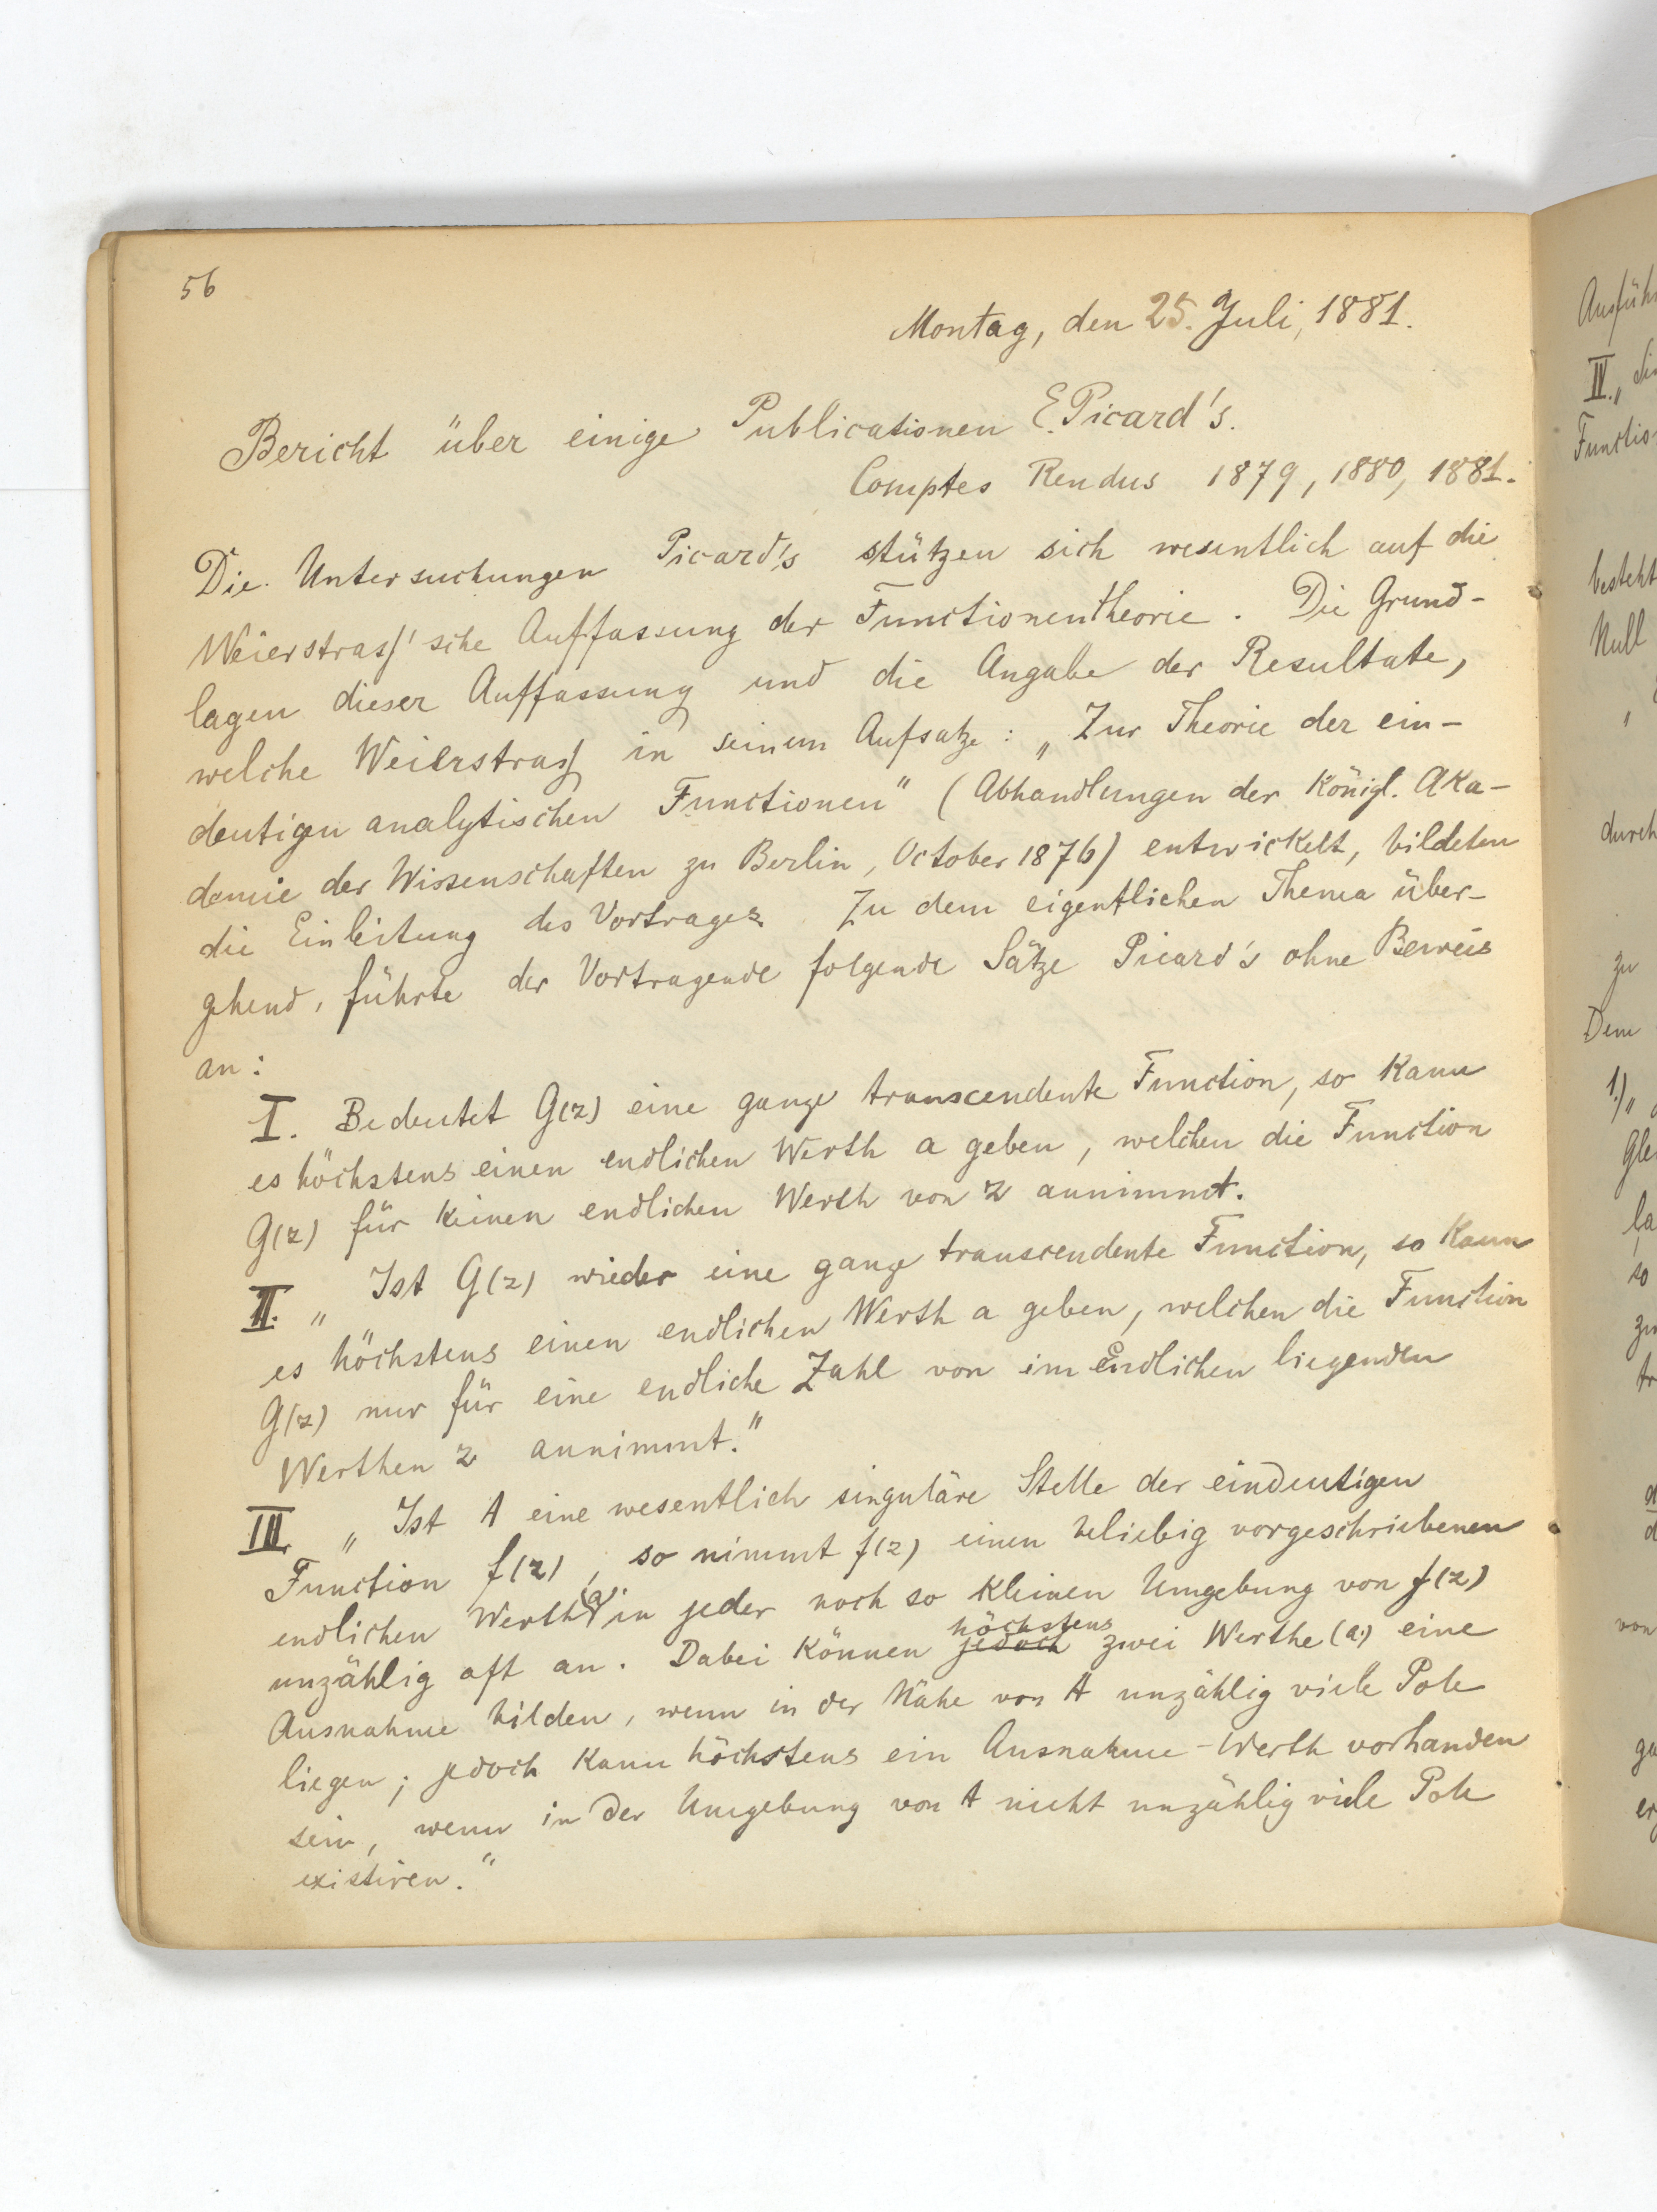 56
Montag, den 25. Juli, 1881.
Bericht über einige Publicationen E. Picard's.
Comptes Rendus 1879, 1880, 1881.
Die Untersuchungen Picard's stützen sich wesentlich auf die
Weierstraß'sche Auffassung der Functionentheorie. Die Grund-
lagen dieser Auffassung und die Angabe der Resultate,
welche Weierstraß in seinem Aufsatze: „Zur Theorie der ein-
deutigen analytischen Functionen" (Abhandlungen der Königl. Aka-
demie der Wissenschaften zu Berlin, October 1876) entwickelt, bildeten
die Einleitung des Vortrages. Zu dem eigentlichen Thema über-
gehend, führte der Vortragende folgende Sätze Picard's ohne Beweis
an:
I. Bedeutet G(z) eine ganze transcendente Function, so kann
es höchstens einen endlichen Werth a geben, welchen die Function
G(z) für keinen endlichen Werth von z annimmt.
II. „Ist G(z) wieder eine ganze transcendente Function, so kann
es höchstens einen endlichen Werth a geben, welchen die Function
G(z) nur für eine endliche Zahl von im Endlichen liegenden
Werthen z annimmt."
III. „Ist A eine wesentlich singuläre Stelle der eindeutigen
Function f(z), so nimmt f(z) einen beliebig vorgeschriebenen
endlichen Werth (a) in jeder noch so kleinen Umgebung von f(z)
unzählig oft an. Dabei können jedoch höchstens zwei Werthe (a) eine
Ausnahme bilden, wenn in der Nähe von A unzählig viele Pole
liegen; jedoch kann höchstens ein Ausnahme-Werth vorhanden
sein, wenn in der Umgebung von A nicht unzählig viele Pole
existiren."
IV. „
Functio
besteht
Null
durch
zu
Dem
1.) „
la
so
von